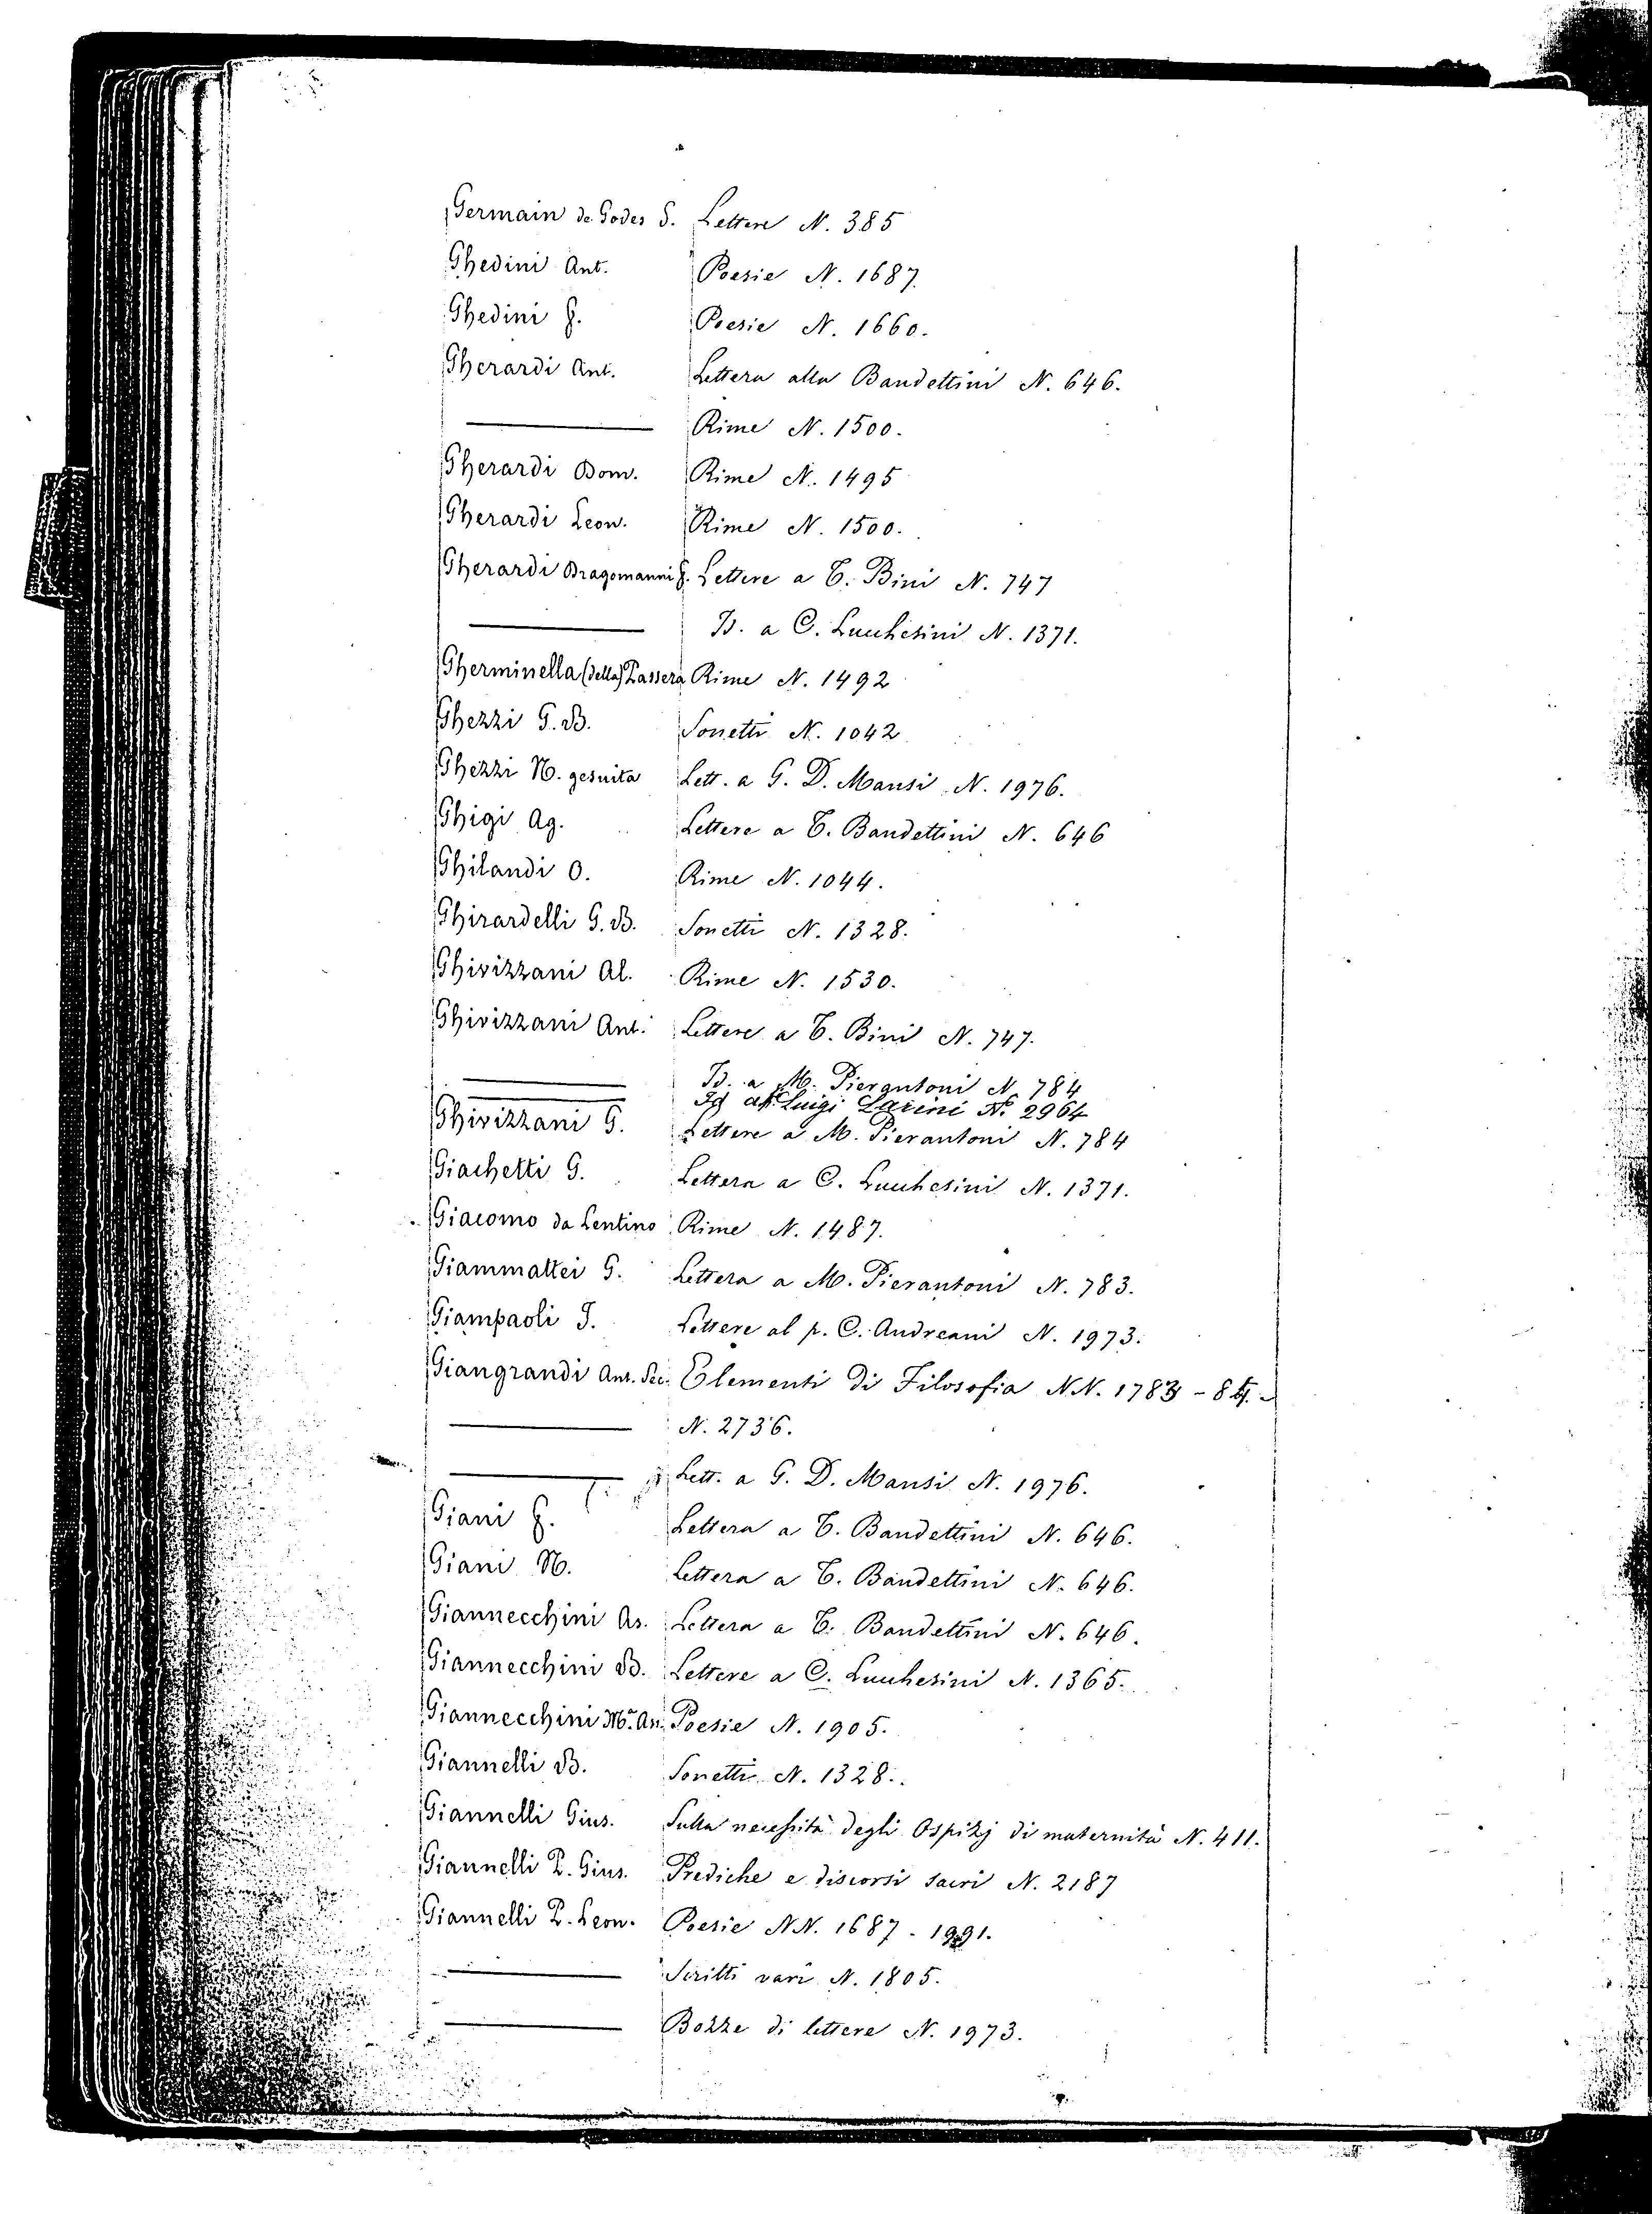 Germain de Godes S. Lettere N. 385
Ghedini Ant. Poesie N. 1687.
Ghedini F. Poesie N. 1660.
Gherardi Ant. Lettera alla Bandettini N. 646.
——— Rime N. 1500.
Gherardi Dom. Rime N. 1495
Gherardi Leon. Rime N. 1500.
Gherardi Dragomanni F. Lettere a T. Bini N. 747
——— Id. a C. Lucchesini N. 1371.
Gherminella (della) Passera Rime N. 1492
Ghezzi G. B. Sonetti N. 1042
Ghezzi N. gesuita Lett. a G. D. Mansi N. 1976.
Ghigi Ag. Lettere a T. Bandettini N. 646
Ghilandi O. Rime N. 1044.
Ghirardelli G. B. Sonetti N. 1328.
Ghivizzani Al. Rime N. 1530.
Ghivizzani Ant. Lettere a T. Bini N. 747.
——— Id. a M. Pierantoni N. 784
——— Id al Luigi N. 2964
Ghivizzani G. Lettere a M. Pierantoni N. 784
Giachetti G. Lettera a C. Lucchesini N. 1371.
Giacomo da Lentino Rime N. 1487.
Giammattei G. Lettera a M. Pierantoni N. 783.
Giampaoli J. Lettere al p. C. Andreani N. 1973.
Giangrandi Ant. Elementi di Filosofia N.N. 1783 - 84. -
——— N. 2736.
——— Lett. a G. D. Mansi N. 1976.
Giani F. Lettera a T. Bandettini N. 646.
Giani N. Lettera a T. Bandettini N. 646.
Giannecchini As. Lettera a T. Bandettini N. 646.
Giannecchini B. Lettere a C. Lucchesini N. 1365.
Giannecchini Mª. An. Poesie N. 1905.
Giannelli B. Sonetti N. 1328.
Giannelli Gius. Sulla necessità degli Ospizj di maternità N. 411.
Giannelli P. Gius. Prediche e discorsi sacri N. 2187
Giannelli P. Leon. Poesie N.N. 1687 - 1991.
——— Scritti vari N. 1805.
——— Bozze di lettere N. 1973.